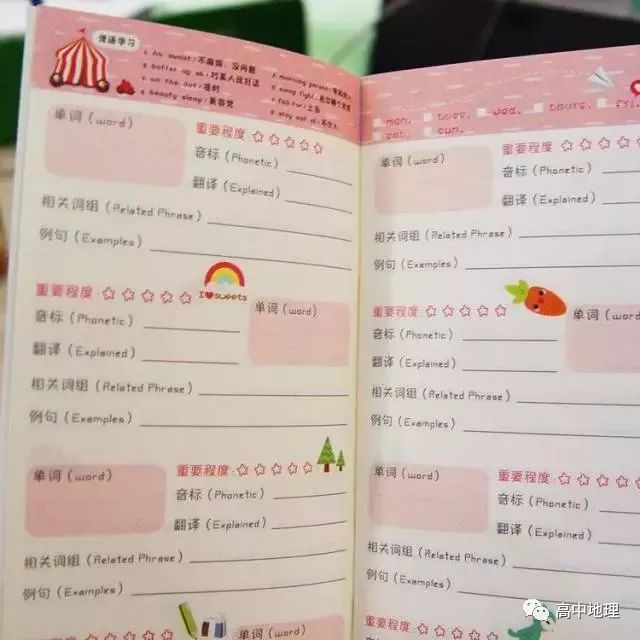 俚语学习
1. no sweat/不麻烦, 没问题
2. butter up sb/对某人说好话
3. on the dot/准时
4. beauty sleep/美容觉
5. morning person/
8. stay out of/
单词（word）
重要程度:
音标（Phonetic）
翻译（Explained）
相关词组（Related Phrase）
例句（Examples）
重要程度:
I sweets
单词（word）
音标（Phonetic）
翻译（Explained）
相关词组（Related Phrase）
例句（Examples）
单词（word）
重要程度:
音标（Phonetic）
翻译（Explained）
相关词组（Related Phrase）
例句（Examples）
重要程度:
mon. tues. wed. thurs. fri.
sat. sun.
单词（word）
重要程度:
音标（Phonetic）
翻译（Explained）
相关词组（Related Phrase）
例句（Examples）
重要程度:
单词（word）
音标（Phonetic）
翻译（Explained）
相关词组（Related Phrase）
例句（Examples）
单词（word）
重要程度:
音标（Phonetic）
翻译（Explained）
相关词组（Related Phrase）
例句（Examples）
重要程度:
高中地理